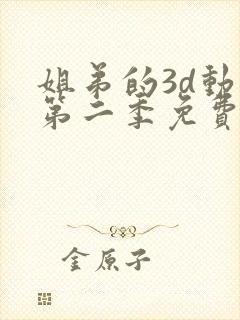 姐弟的3d動
第二季免費
金原子